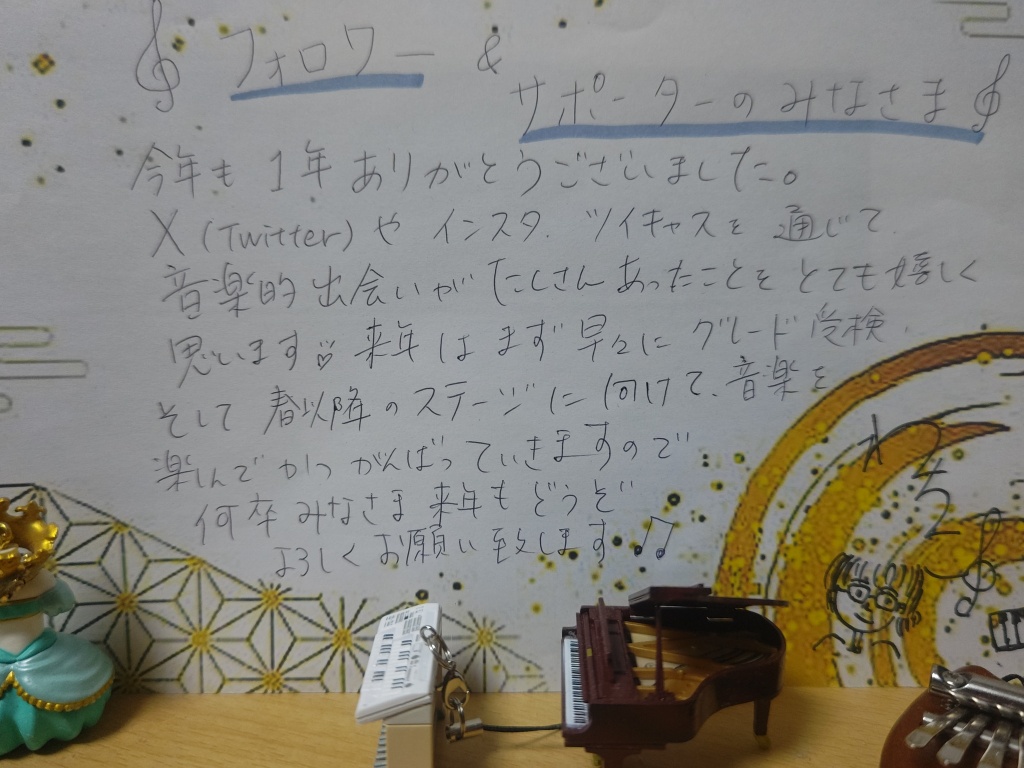 フォロワー &
サポーターのみなさま
今年も1年ありがとうございました。
X(Twitter)や インスタ、ツイキャスを通じて、
音楽的出会いがたくさんあったことをとても嬉しく
思います♡ 来年はまず早々にグレード受検、
そして春以降のステージに向けて、音楽を
楽しんでかつがんばっていきますので
何卒みなさま来年もどうぞ
よろしくお願い致します♫